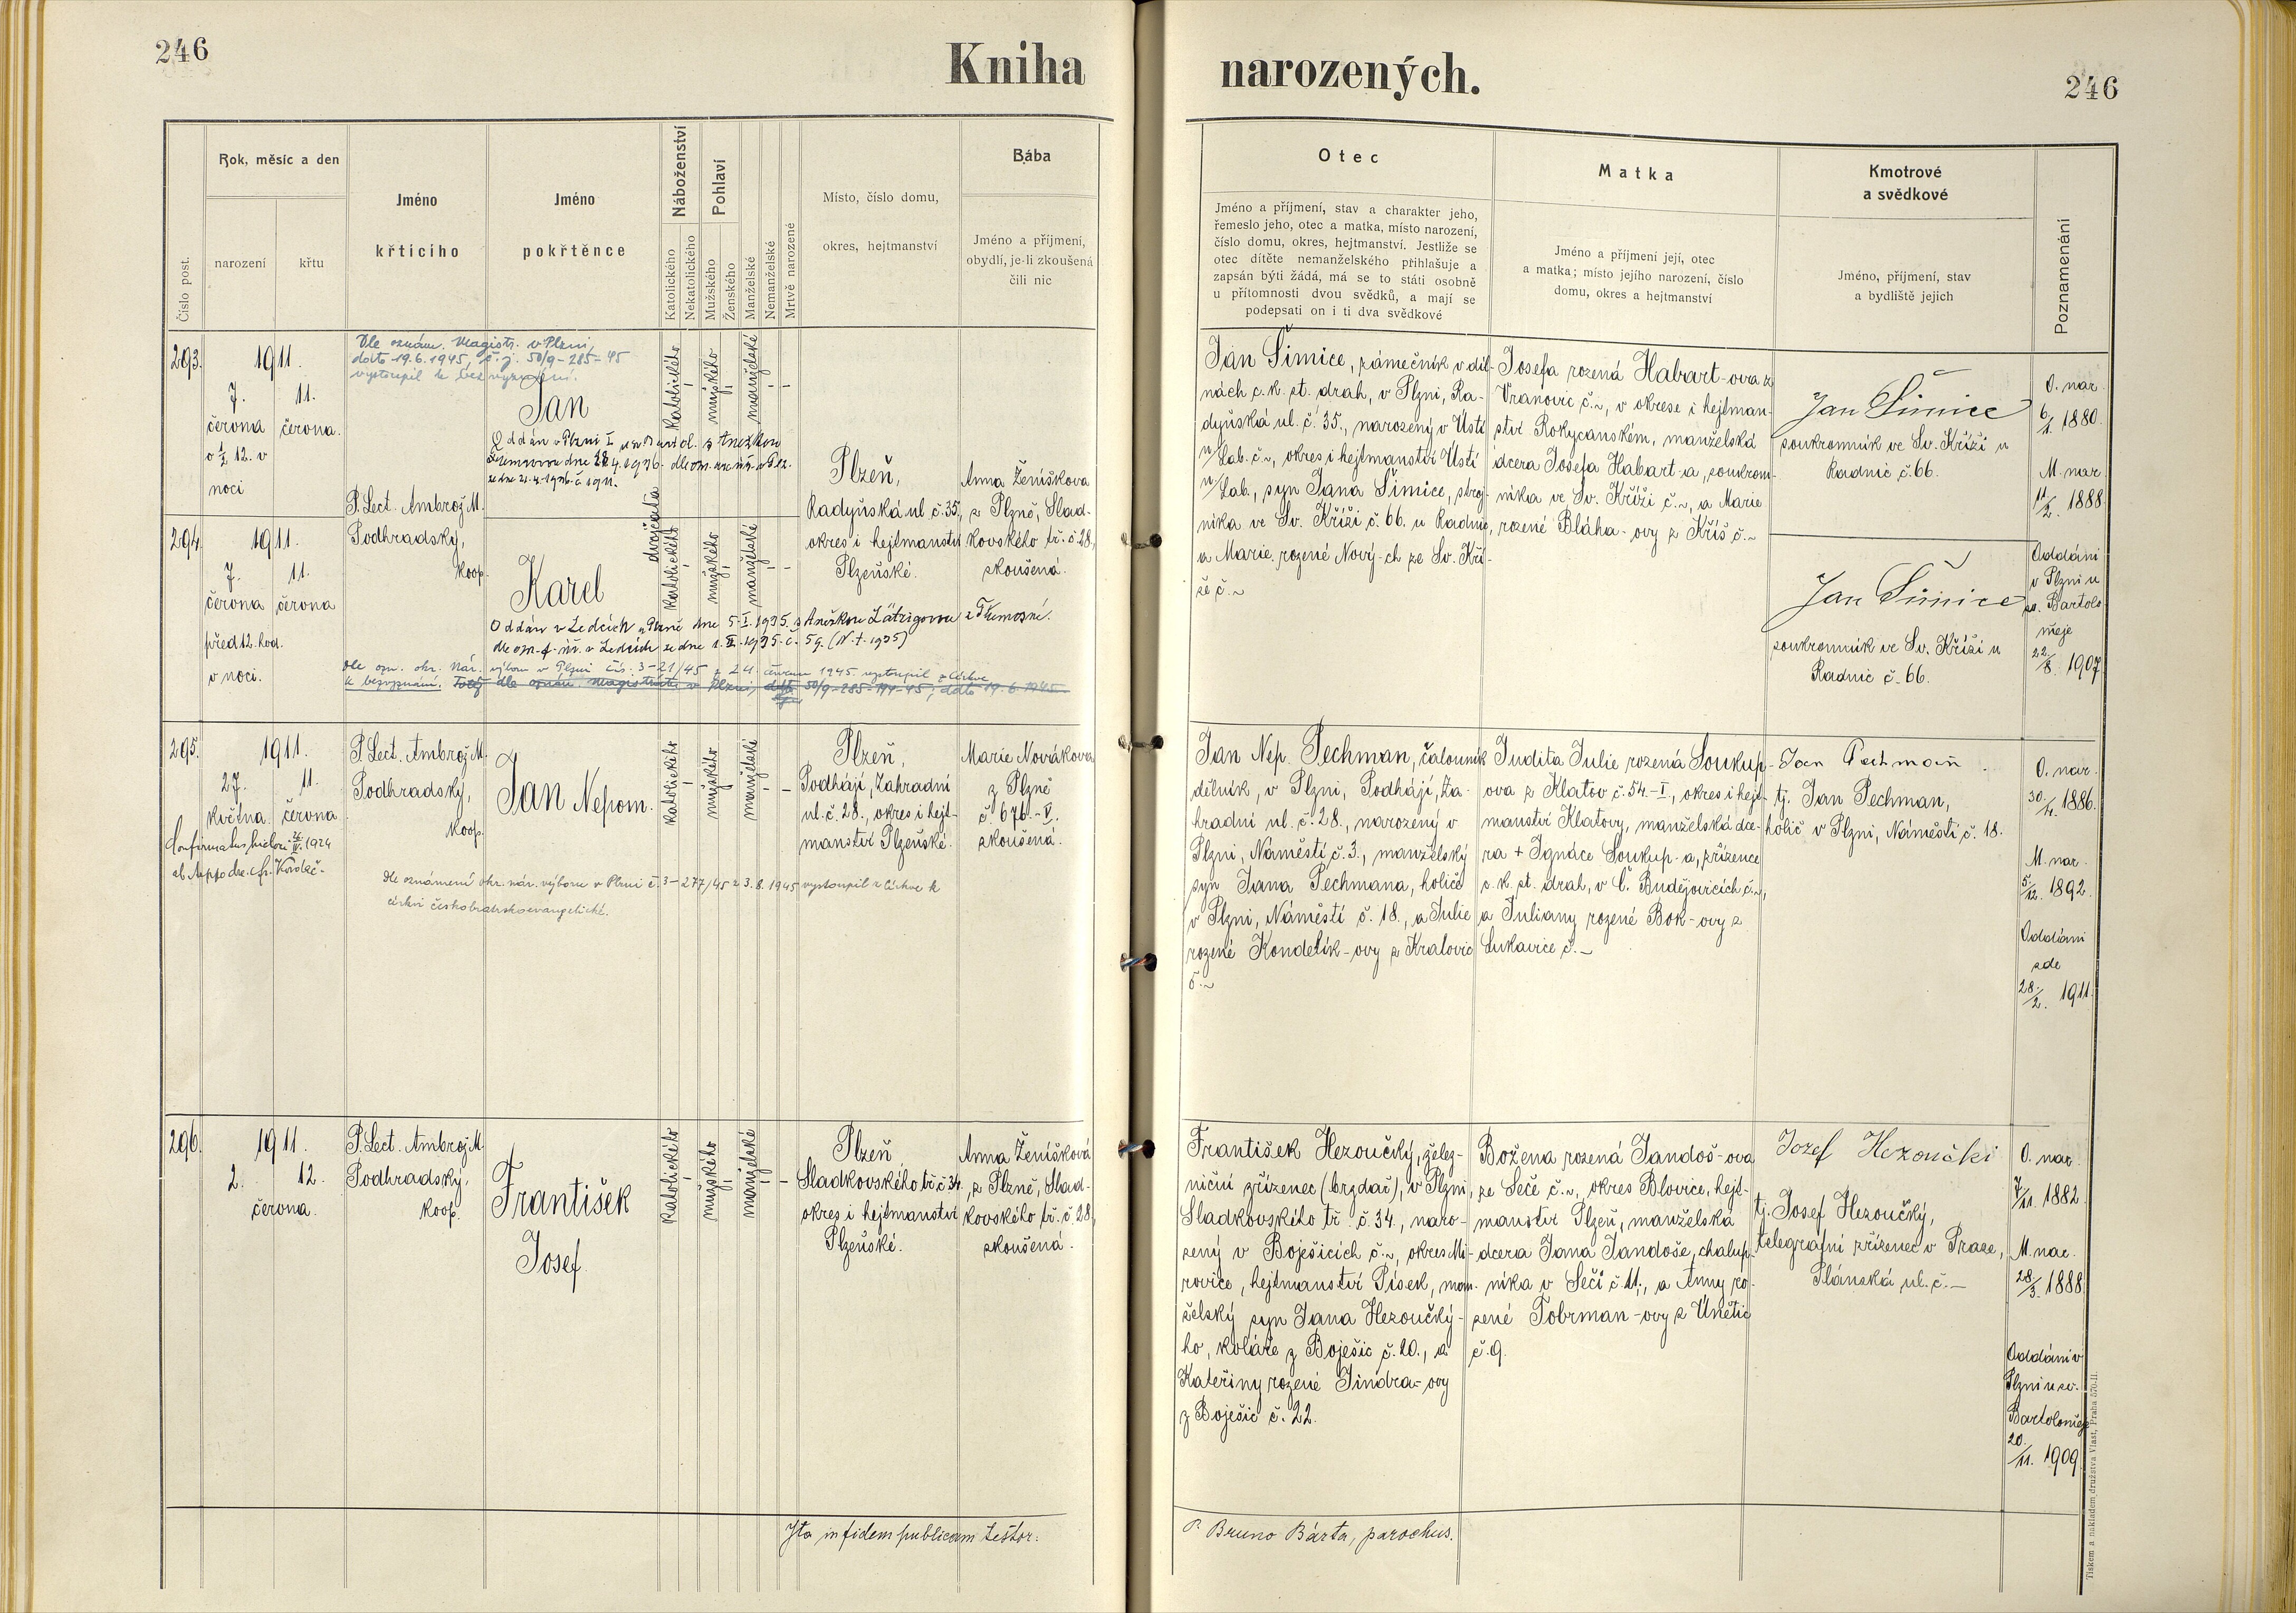 246
Kniha narozených.
246
Číslo post.
Rok, měsíc a den
narození
křtu
Jméno
křticího
Jméno
pokřtěnce
Náboženství
Katolického
Nekatolického
Pohlaví
Mužského
Ženského
Manželské
Nemanželské
Mrtvě narozené
Místo, číslo domu,
okres, hejtmanství
Bába
Jméno a příjmení,
obydlí, je-li zkoušená
čili nic
Otec
Jméno a příjmení, stav a charakter jeho,
řemeslo jeho, otec a matka, místo narození,
číslo domu, okres, hejtmanství. Jestliže se
otec dítěte nemanželského přihlašuje a
zapsán býti žádá, má se to státi osobně
u přítomnosti dvou svědků, a mají se
podepsati on i ti dva svědkové
Matka
Jméno a příjmení její, otec
a matka; místo jejího narození, číslo
domu, okres a hejtmanství
Kmotrové
a svědkové
Jméno, příjmení, stav
a bydliště jejich
Poznamenání
293.
1911.
7. 11.
června června.
o ½ 12. v
noci
Dle oznám. Magistr. v Plzni,
dato 19.6.1945, č.j. 50/9-285-45
vystoupil k bez vyznání.
Jan
Oddán v Plzni I
dne 28.4.1936.
P. Lect. Ambrož M.
Podhradský,
koop.
katolického
mužského
manželské
dvojčata
Plzeň,
Radyňská ul. č. 35,
okres i hejtmanství
Plzeňské.
Anna Ženíšková
z Plzně, Slad-
kovského tř. č. 28,
zkoušená.
Jan Šimice, zámečník v díl-
nách c. k. st. drah, v Plzni, Ra-
dyňská ul. č. 35., narozený v Ústí
n/Lab. č. ~, okres i hejtmanství Ústí
n/Lab., syn Jana Šimice, stroj-
níka ve Sv. Kříži č. 66. u Radnic,
a Marie rozené Nový-ch ze Sv. Kří-
že č. ~
Josefa rozená Habart-ova z
Vranovic č. ~, v okrese i hejtman-
ství Rokycanském, manželská
dcera Josefa Habart-a, soukrom-
níka ve Sv. Kříži č. ~, a Marie
rozené Bláha-ovy z Kříš č. ~
Jan Šimice
soukromník ve Sv. Kříži u
Radnic č. 66.
O. nar.
6/1. 1880.
M. nar.
11/2. 1888.
294.
1911.
7. 11.
června června
před 12. hod.
v noci.
Karel
katolického
mužského
manželské
Oddán v Ledcích u Plzně dne 5. I. 1935. s Anežkou Zátrigovou z Třemošné.
dle ozn. f. úř. v Ledcích ze dne 1. II. 1935. č. 59. (N. t. 1935)
Dle ozn. okr. nár. výboru v Plzni čís. 3-21/45 z 24. června 1945 vystoupil z církve
k bezvyznání.
Jan Šimice
soukromník ve Sv. Kříži u
Radnic č. 66.
Oddáni
v Plzni u
sv. Bartolo-
měje
22./8. 1907.
295.
1911.
27. 11.
května. června
ab Aeppo
P. Lect. Ambrož M.
Podhradský,
koop.
Jan Nepom.
katolického
mužského
manželské
Plzeň,
Podhájí, Zahradní
ul. č. 28., okres i hejt-
manství Plzeňské.
Marie Nováková
z Plzně
č. 676.-V.
zkoušená.
Dle oznámení okr. nár. výboru v Plzni č. 3-277/45 z 3.8.1945 vystoupil z církve k
církvi českobratrskoevangelické.
Jan Nep. Pechman, čalouník
dělník, v Plzni, Podhájí, Za-
hradní ul. č. 28., narozený v
Plzni, Náměstí č. 3., manželský
syn Jana Pechmana, holiče
v Plzni, Náměstí č. 18., a Julie
rozené Kondelík-ovy z Kralovic
č. ~
Judita Julie rozená Soukup-
ova z Klatov č. 54.-I., okres i hejt-
manství Klatovy, manželská dce-
ra + Ignáce Soukup-a, zřízence
c. k. st. drah, v Č. Budějovicích č. ~,
a Juliany rozené Bok-ovy z
Lukavice č. –
Jan Pechman
tj. Jan Pechman,
holič v Plzni, Náměstí č. 18.
O. nar.
30/4. 1886.
M. nar.
5/12. 1892.
Oddáni
zde
28./2. 1911.
296.
1911.
2. 12.
června.
P. Lect. Ambrož M.
Podhradský,
koop.
František
Josef
katolického
mužského
manželské
Plzeň,
Sladkovského tř. č. 34.
okres i hejtmanství
Plzeňské.
Anna Ženíšková
z Plzně, Slad-
kovského tř. č. 28,
zkoušená.
František Hezoučký, želez-
niční zřízenec (brzdař), v Plzni,
Sladkovského tř. č. 34., naro-
zený v Boješicích č. ~, okres Mi-
rovice, hejtmanství Písek, man-
želský syn Jana Hezoučký-
ho, koláře z Boješic č. 20., a
Kateřiny rozené Jindra-ovy
z Boješic č. 22.
Božena rozená Jandoš-ova
ze Seče č. ~, okres Blovice, hejt-
manství Plzeň, manželská
dcera Jana Jandoše, chalup-
níka v Seči č. 11., a Anny ro-
zené Tobrman-ovy z Únětic
č. 9.
Jozef Hezoučki
tj. Josef Hezoučký,
telegrafní zřízenec v Praze,
Plánská ul. č. –
O. nar.
7/11. 1882.
M. nar.
28/3. 1888.
Oddáni v
Plzni u sv.
Bartoloměje
20./11. 1909.
Ita in fidem publicam testor:
P. Bruno Bárta, parochus.
Tiskem a nakladem družstva Vlast, Praha 570-II.